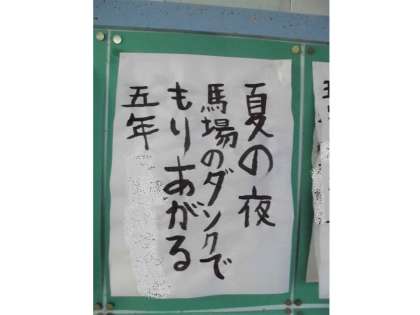 夏の夜
馬場のダンクで
もりあがる
五年